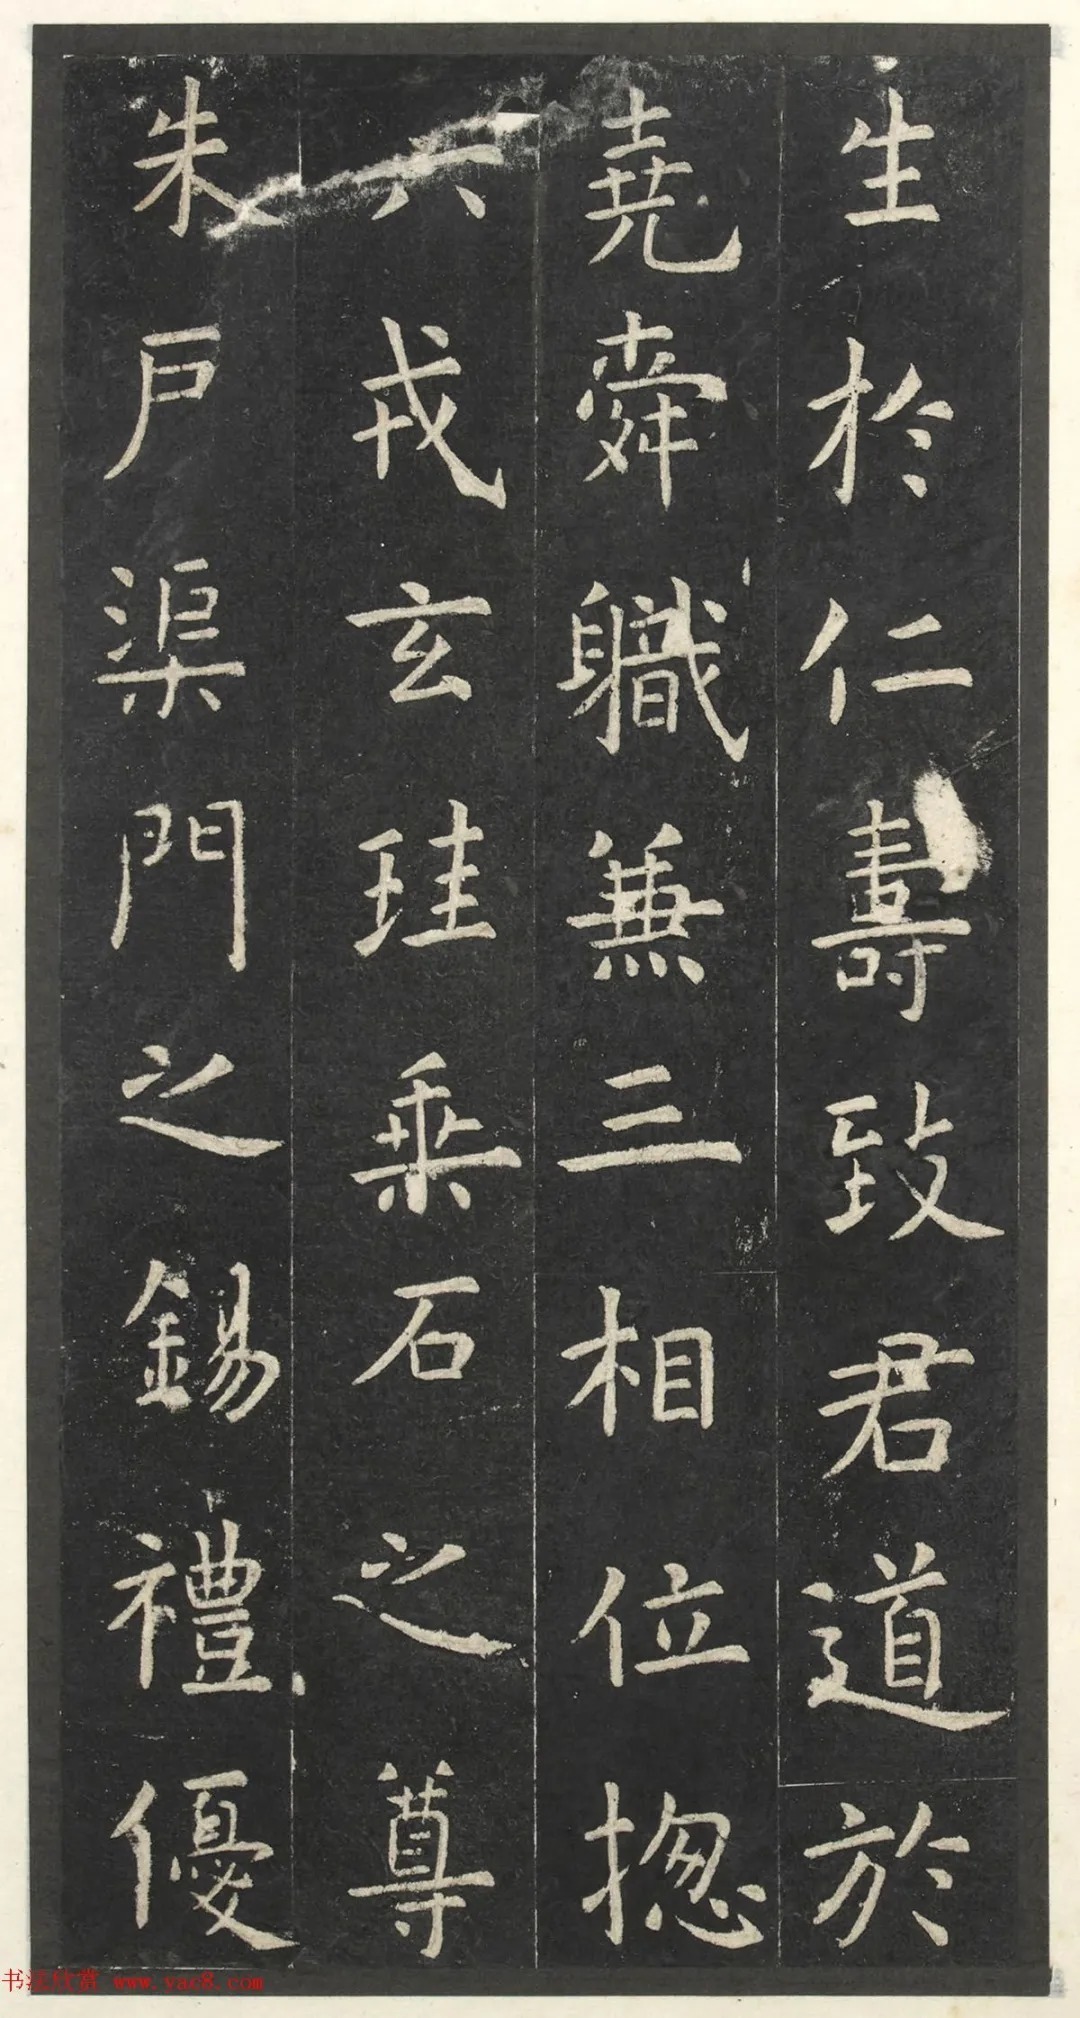 生於仁壽致君道於
堯舜職兼三相位揔
六戎玄珪乘石之尊
朱戶渠門之錫禮優
书法欣赏 www.yac8.com